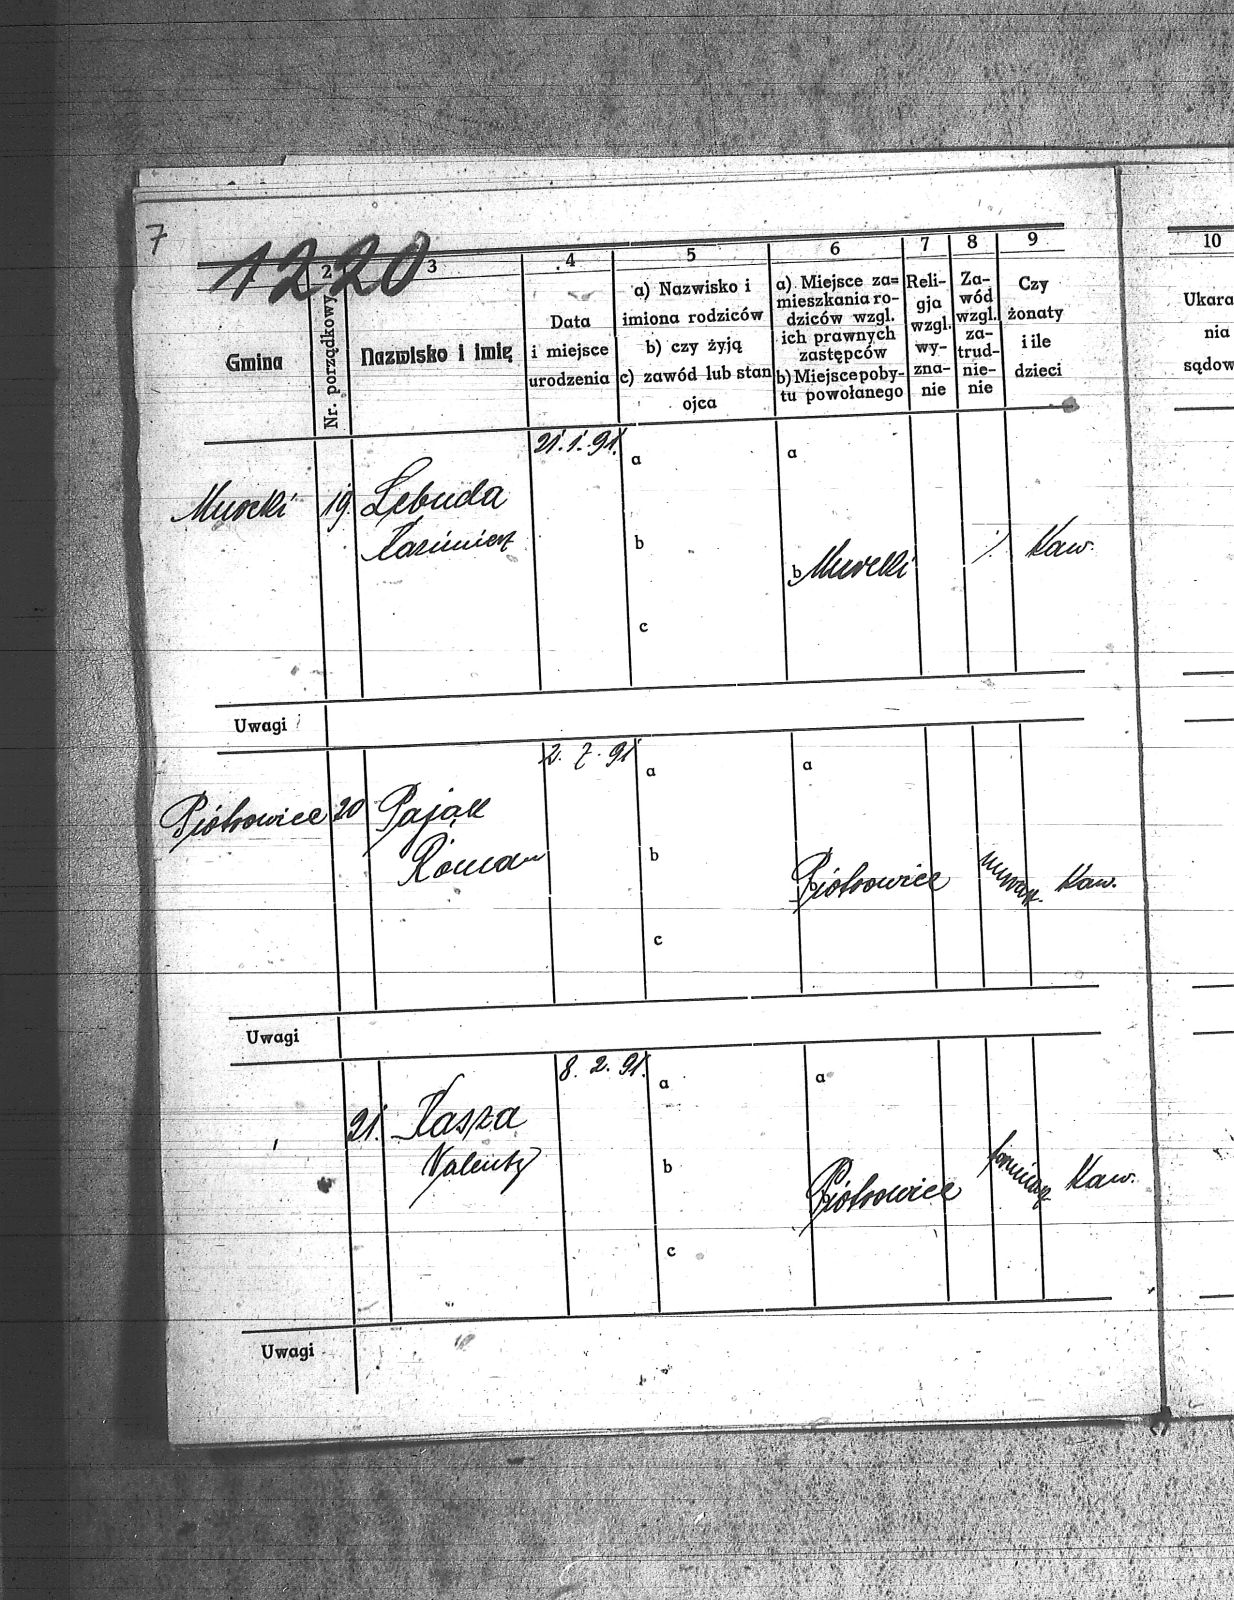 7
1220
2 3 4 5 6 7 8 9 10
Gmina
Nr. porządkowy
Nazwisko i imię
Data
i miejsce
urodzenia
a) Nazwisko i
imiona rodziców
b) czy żyją
c) zawód lub stan
ojca
a) Miejsce za=
mieszkania ro-
dziców wzgl.
ich prawnych
zastępców
b) Miejsce poby-
tu powołanego
Reli-
gja
wzgl.
wy-
zna-
nie
Za-
wód
wzgl.
za-
trud-
nie-
nie
Czy
żonaty
i ile
dzieci
Ukara
nia
sądow
21.1.91.
a a
Murcki 19. Lebuda
Kazimierz
b
b Murcki ./. Kaw.
c
Uwagi
2. 7. 91
a a
Piotrowice 20 Pająk
Roman
b
Piotrowice murarz. Kaw.
c
Uwagi
8. 2. 91.
a a
21. Kasza
Valenty
b
Piotrowice Kaw.
c
Uwagi